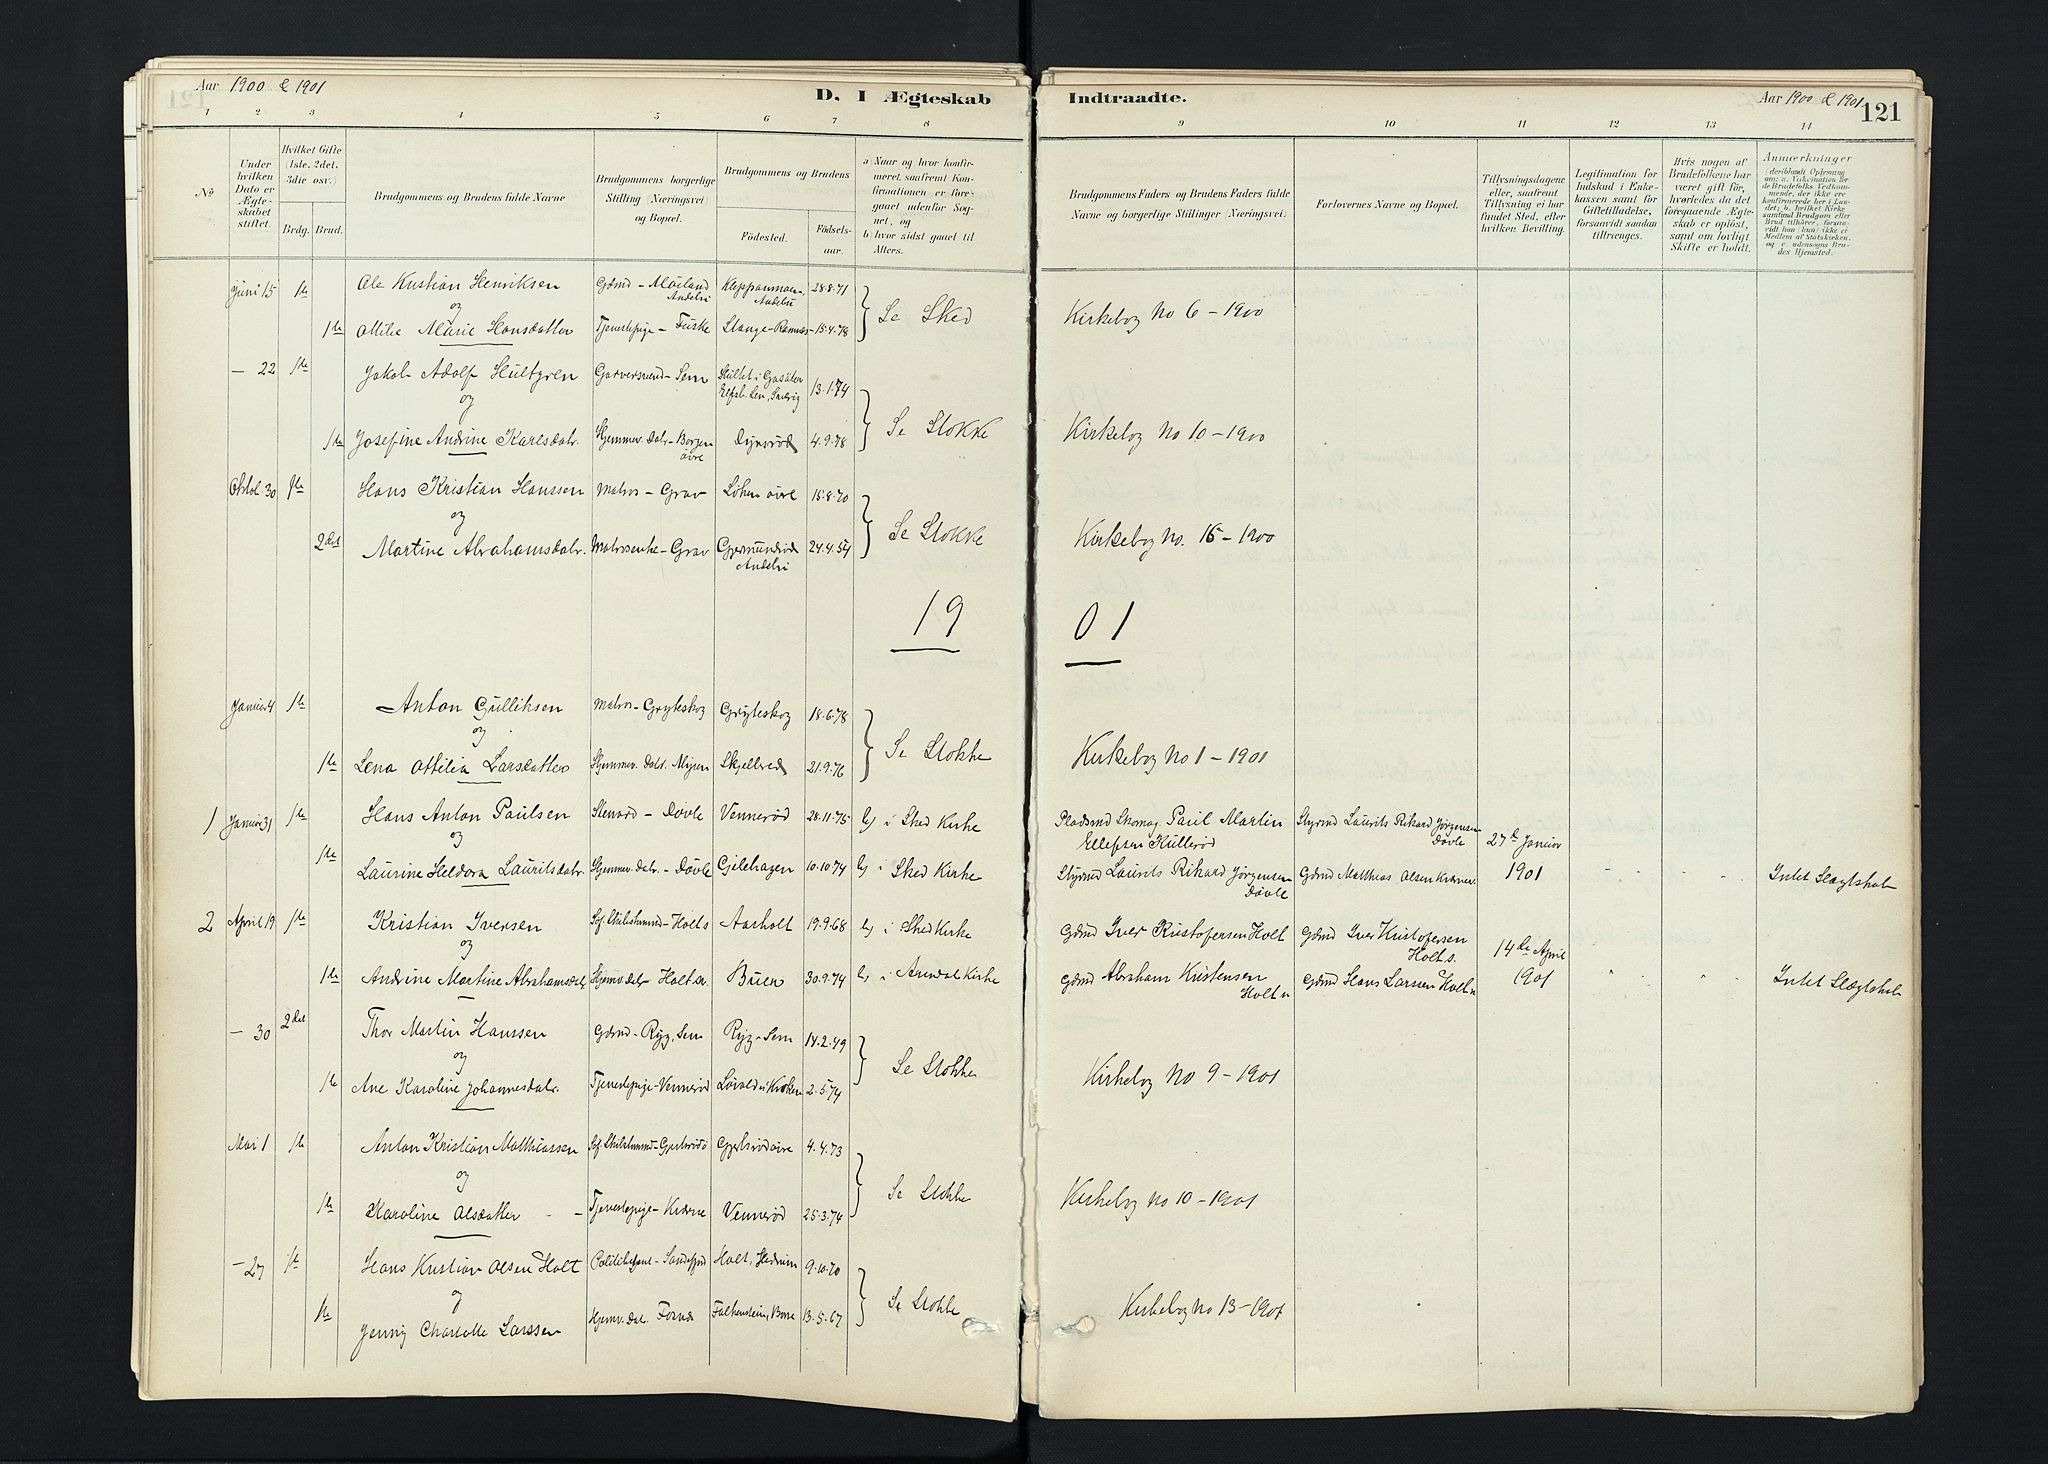 Aar 1900 & 1901
D. I Ægteskab Indtraadte.
Aar 1900 & 1901
121
1 2 3 4 5 6 7 8 9 10 11 12 13 14
No.
Under hvilken Dato er Ægteskabet stiftet.
Hvilket Gifte (1ste, 2det, 3die osv.)
Brdg. Brud.
Brudgommens og Brudens fulde Navne
Brudgommens borgerlige Stilling (Næringsvei) og Bopæl.
Brudgommens og Brudens
Födested. Födselsaar.
a) Naar og hvor konfirmeret, saafremt Konfirmationen er foregaaet udenfor Sognet, og
b) hvor sidst gaaet til Alters.
Brudgommens Faders og Brudens Faders fulde Navne og borgerlige Stillinger (Næringsvei).
Forlovernes Navne og Bopæl.
Tillysningsdagene eller, saafremt Tillysning ei har fundet Sted, efter hvilken Bevilling.
Legitimation for Indskud i Enkekassen samt for Giftetilladelse, forsaavidt saadan tiltrænges.
Hvis nogen af Brudefolkene har været gift för, hvorledes da det foregaaende Ægteskab er oplöst, samt om lovligt Skifte er holdt.
Anmærkninger
Juni 15 1ste Ole Kristian Henriksen Gdmd – Möiland Andebu 28.8.71
og Se Sked Kirkebog No 6 – 1900
1ste Otilie Marie Hansdatter Tjenestepige – Fuske Stange – Ramnæs 15.4.78
– 22 1ste Jakob Adolf Hultgren Garversvend – Sem 13.1.74
og Se Stokke Kirkebog No 10 – 1900
1ste Josefine Andrine Karlsdatr. Hjemmev. Datr – Borgen övre 4.9.78
Oktob 30 1ste Hans Kristian Hanssen Matros – Grav Løken övre 15.8.70
og Se Stokke Kirkebog No. 15 – 1900
2det Martine Abrahamsdatr. Matrosenke – Grav Gjermundrød Andebu 24.4.54
1901
Januar 4 1ste Anton Gulliksen Matros – Gryteskog Gryteskog 18.6.78
og Se Stokke Kirkebog No 1 – 1901
1ste Lena Otilia Larsdatter Hjemmev. Datr. Skjelbred 21.9.76
1 Januar 31 1ste Hans Anton Paulsen – Døvle Vennerød 28.11.75 b) i Sked Kirke Pladsmd Skomag. Paul Martin Ellefsen Kullerød Styrmd Laurits Rikard Jørgensen Døvle 27de Januar
og
1ste Laurine Heldora Lauritsdatr. Hjemmev. Datr. – Døvle Gjelehagen 10.10.74 b) i Sked Kirke Styrmd Laurits Rikard Jørgensen Døvle Gdmd Matthias Olsen Kræmer 1901 Intet Slægtskab
2 April 19 1ste Kristian Iversen Sef. Skibstømmd – Holt s Aasholt 19.9.68 b) i Sked Kirke Gdmd Iver Kristofersen Holt Gdmd Iver Kristofersen Holt s. 14de April
og
1ste Andrine Martine Abrahamsdatr. Hjemv Datr Holt n. 30.9.74 b) i Arendal Kirke Gdmd Abraham Kristensen Holt n Gdmd Hans Larsen Holt n 1901 Intet Slægtskab
– 30 2det Thor Martin Hanssen Gdmd – Ryg, Sem Ryg – Sem 14.2.49
og Se Stokke Kirkebog No 9 – 1901
1ste Ane Karoline Johannesdatr. Tjenestepige – Vennerød Løvald i Kroken 2.5.74
Mai 1 1ste Anton Kristian Matthiassen Sef. Skibstømmd – Gjelsrød ö Gjelsrød övre 4.4.73
og Se Stokke Kirkebog No 10 – 1901
1ste Karoline Olsdatter – Tjenestepige – Kræmer Vennerød 25.3.74
– 27 1ste Hans Kristian Olsen Holt Politibetjent – Sandefjord Holt, Hedrum 9.10.70
og Se Stokke Kirkebog No 13 – 1901
1ste Jenny Charlotte Larssen Hjemv. Datr. Falkenstein, Borre 13.5.67